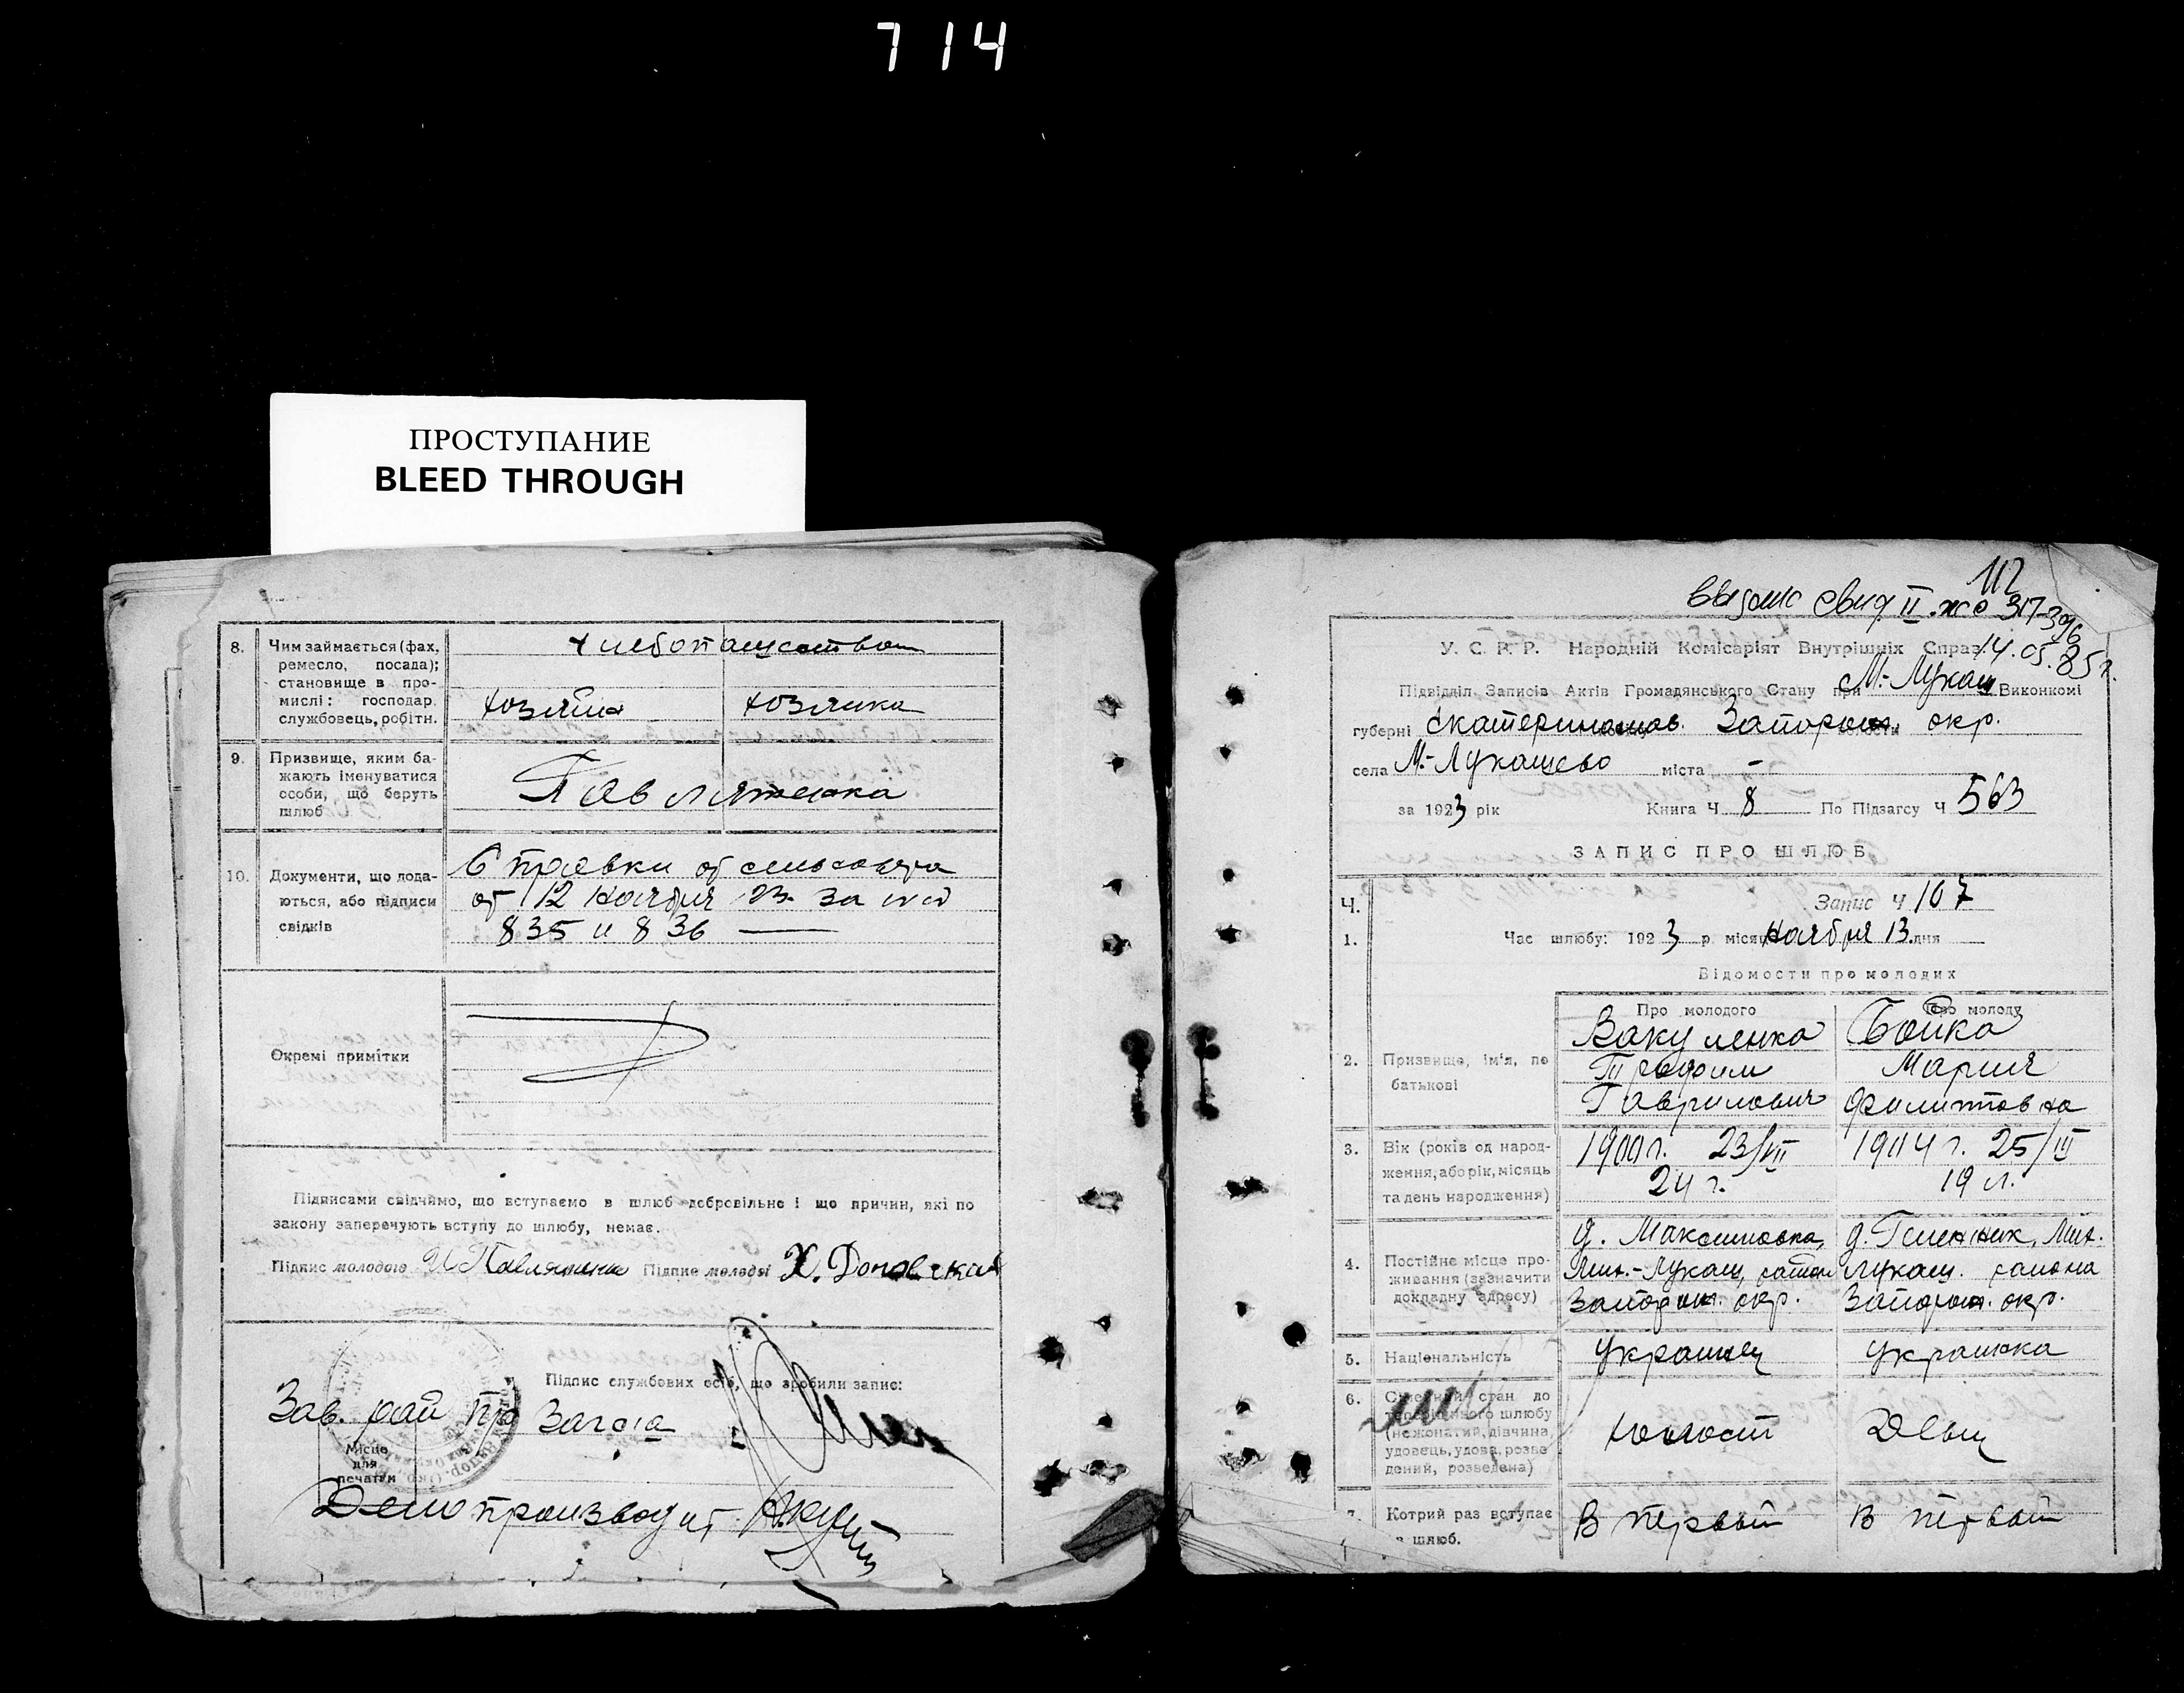 714
ПРОСТУПАНИЕ
BLEED THROUGH
8. Чим займається (фах, ремесло, посада); становище в промислі: господар, службовець, робітн.
хлебопашеством
хозяин хозяйка
9. Призвище, яким бажають іменуватися особи, що беруть шлюб
Павлятенко
10. Документи, що додаються, або підписи свідків
Справки от сельсовета
от 12 ноября 23. за №№
835 и 836 —
Окремі примітки
Підписами свідчимо, що вступаємо в шлюб добровільно і що причин, які по
закону заперечують вступу до шлюбу, немає.
Підпис молодого Підпис молодої Х.
Підпис службових осіб, що зробили запис:
Зав. рай Загса
Місце
для
печатки
Делопроизводит.
112
выдано свид II-жс 317396
14.05.85г.
У. С. Р. Р. Народній Комісаріят Внутрішніх Справ
Підвідділ Записів Актів Громадянського Стану при М.-Лукаш Виконкомі
губерні Екатеринослав. Запорож. окр.
села М.-Лукашево міста –
за 1923 рік Книга Ч 8 По Підзагсу Ч 563
ЗАПИС ПРО ШЛЮБ
Ч. Запис Ч 107
1. Час шлюбу: 1923 р. місяц Ноября 13 дня
Відомости про молодих
Про молодого Про молоду
2. Призвище, ім'я, по батькові
Вакуленко Бойко
Трофим Мария
Гаврилович Филипповна
3. Вік (років од народження, або рік, місяць та день народження)
1900 г. 23/VII 1904 г. 25/III
24 г. 19 л.
4. Постійне місце проживання (зазначити докладну адресу)
д. Максимовка, д. Мих.
Мих.-Лукаш. район Лукаш. района
Запорож. окр. Запорож. окр.
5. Національність
Украинец Украинка
6. стан до шлюбу (нежонатий, дівчина, удовець, удова, розведений, розведена)
холост Девиц
7. Котрий раз вступає в шлюб.
В первый В первый